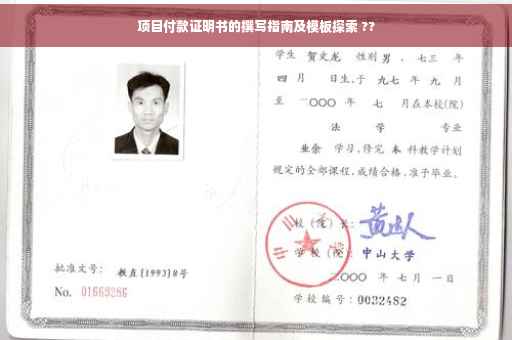 项目付款证明书的撰写指南及模板探索 ??
学生 贺文龙 性别 男 、七三 年
四 月 日生,于 九七 年 九 月
至 二〇〇〇 年 七 月在本校(院)
法 学 专业
业余 学习,修完 本 科教学计划
规定的全部课程,成绩合格,准予毕业。
校(院)长:
学 校(院): 中山大学
二〇〇〇 年 七 月 一 日
批准文号: 教直[1993]8号
No. 01669286
学校编号: 0032482